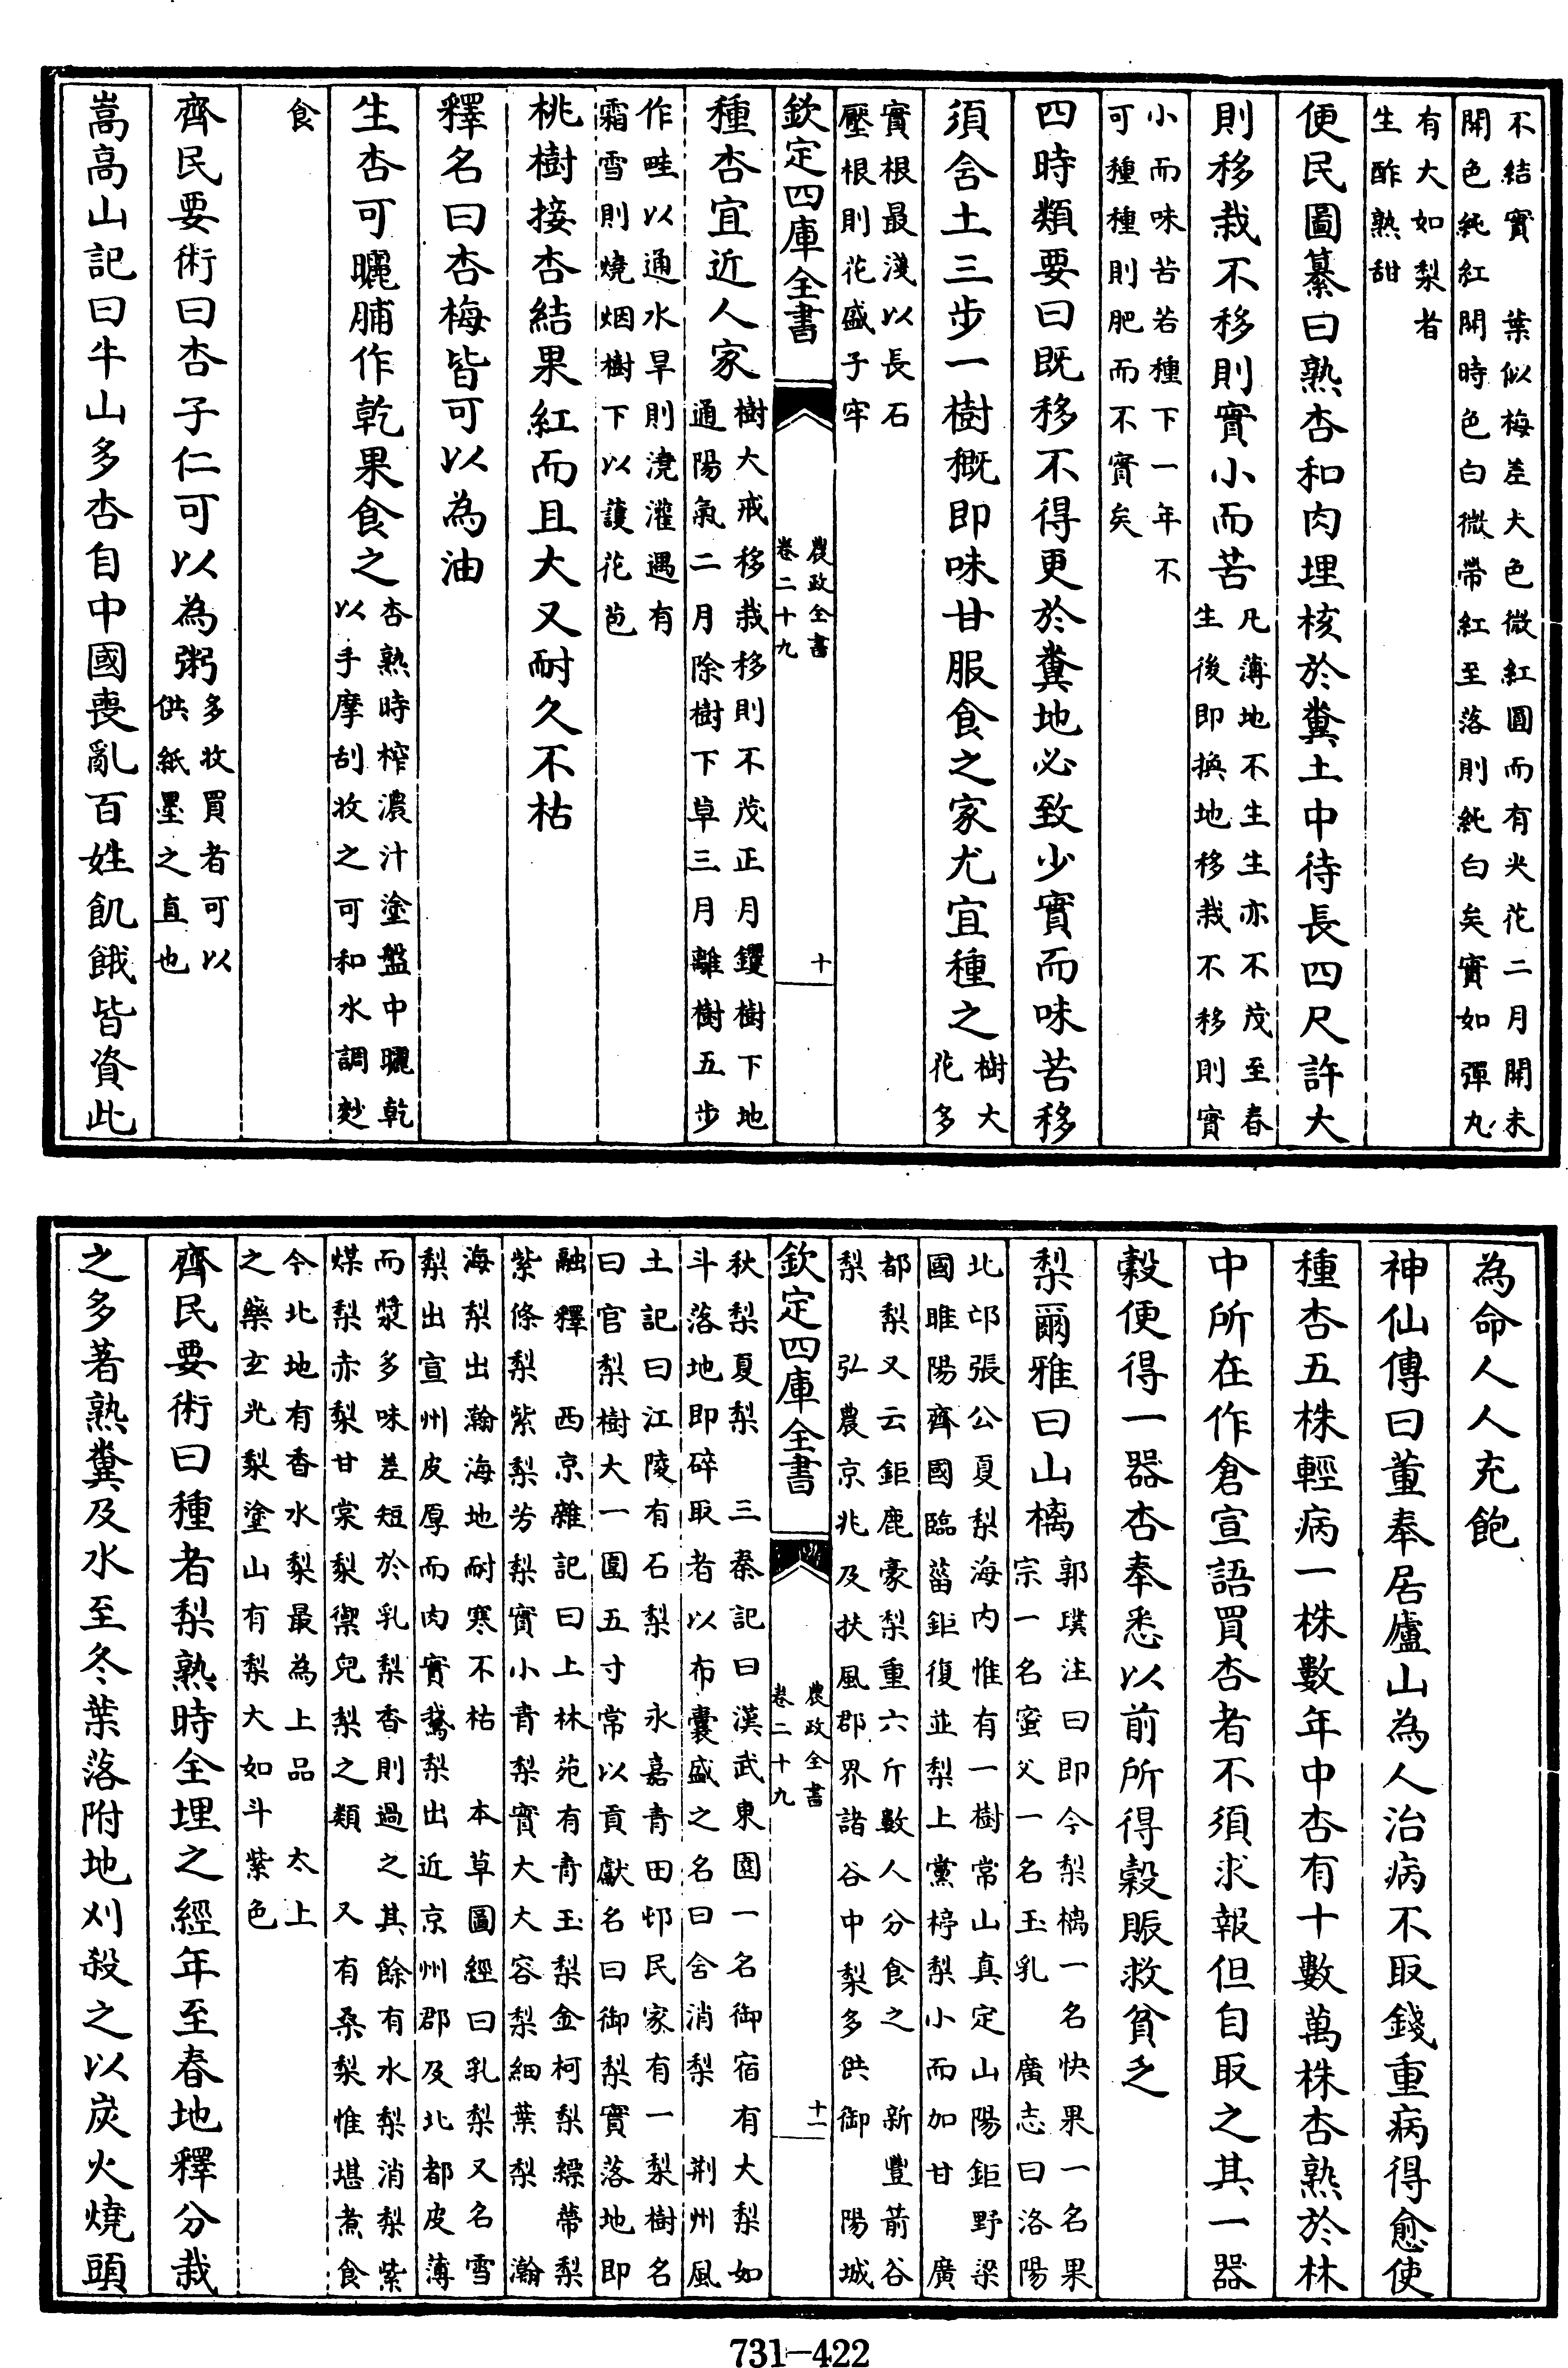 不結實　葉似梅差大色微紅圓而有尖花二月開未
開色純紅開時色白微帶紅至落則純白矣實如彈丸
有大如梨者
生酢熟甜
便民圖纂曰熟杏和肉埋核於糞土中待長四尺許大
則移栽不移則實小而苦
凡薄地不生生亦不茂至春
生後即換地移栽不移則實
小而味苦若種下一年不
可種種則肥而不實矣
四時類要曰既移不得更於糞地必致少實而味苦移
須含土三步一樹概即味甘服食之家尤宜種之
樹大
花多
實根最淺以長石
壓根則花盛子牢
欽定四庫全書
農政全書
卷二十九
十
種杏宜近人家
樹大戒移栽移則不茂正月钁樹下地
通陽氣二月除樹下草三月離樹五步
作畦以通水旱則澆灌遇有
霜雪則燒烟樹下以護花苞
桃樹接杏結果紅而且大又耐久不枯
釋名曰杏梅皆可以為油
生杏可曬脯作乾果食之
杏熟時榨濃汁塗盤中曬乾
以手摩刮收之可和水調麨
食
齊民要術曰杏子仁可以為粥
多收買者可以
供紙墨之直也
嵩高山記曰牛山多杏自中國喪亂百姓飢餓皆資此
為命人人充飽
神仙傳曰董奉居廬山為人治病不取錢重病得愈使
種杏五株輕病一株數年中杏有十數萬株杏熟於林
中所在作倉宣語買杏者不須求報但自取之其一器
穀便得一器杏奉悉以前所得穀賑救貧乏
梨爾雅曰山樆
郭璞注曰即今梨樆一名快果一名果
宗一名蜜父一名玉乳　廣志曰洛陽
北邙張公夏梨海內惟有一樹常山真定山陽鉅野梁
國睢陽齊國臨菑鉅復並梨上黨楟梨小而加甘　廣
都梨又云鉅鹿豪梨重六斤數人分食之　新豐箭谷
梨　弘農京兆及扶風郡界諸谷中梨多供御　陽城
欽定四庫全書
農政全書
卷二十九
十一
秋梨夏梨　三秦記曰漢武東園一名御宿有大梨如
斗落地即碎取者以布囊盛之名曰含消梨　荆州風
土記曰江陵有石梨　永嘉青田邨民家有一梨樹名
曰官梨樹大一圍五寸常以貢獻名曰御梨實落地即
融釋　西京雜記曰上林苑有青玉梨金柯梨縹蔕梨
紫條梨紫梨芳梨實小青梨實大大容梨細葉梨　瀚
海梨出瀚海地耐寒不枯　本草圖經曰乳梨又名雪
梨出宣州皮厚而肉實鵞梨出近京州郡及北都皮薄
而漿多味差短於乳梨香則過之其餘有水梨消梨紫
煤梨赤梨甘棠梨禦兒梨之類　又有桑梨惟堪煮食
今北地有香水梨最為上品　太上
之藥玄光梨塗山有梨大如斗紫色
齊民要術曰種者梨熟時全埋之經年至春地釋分栽
之多著熟糞及水至冬葉落附地刈殺之以炭火燒頭
731—422